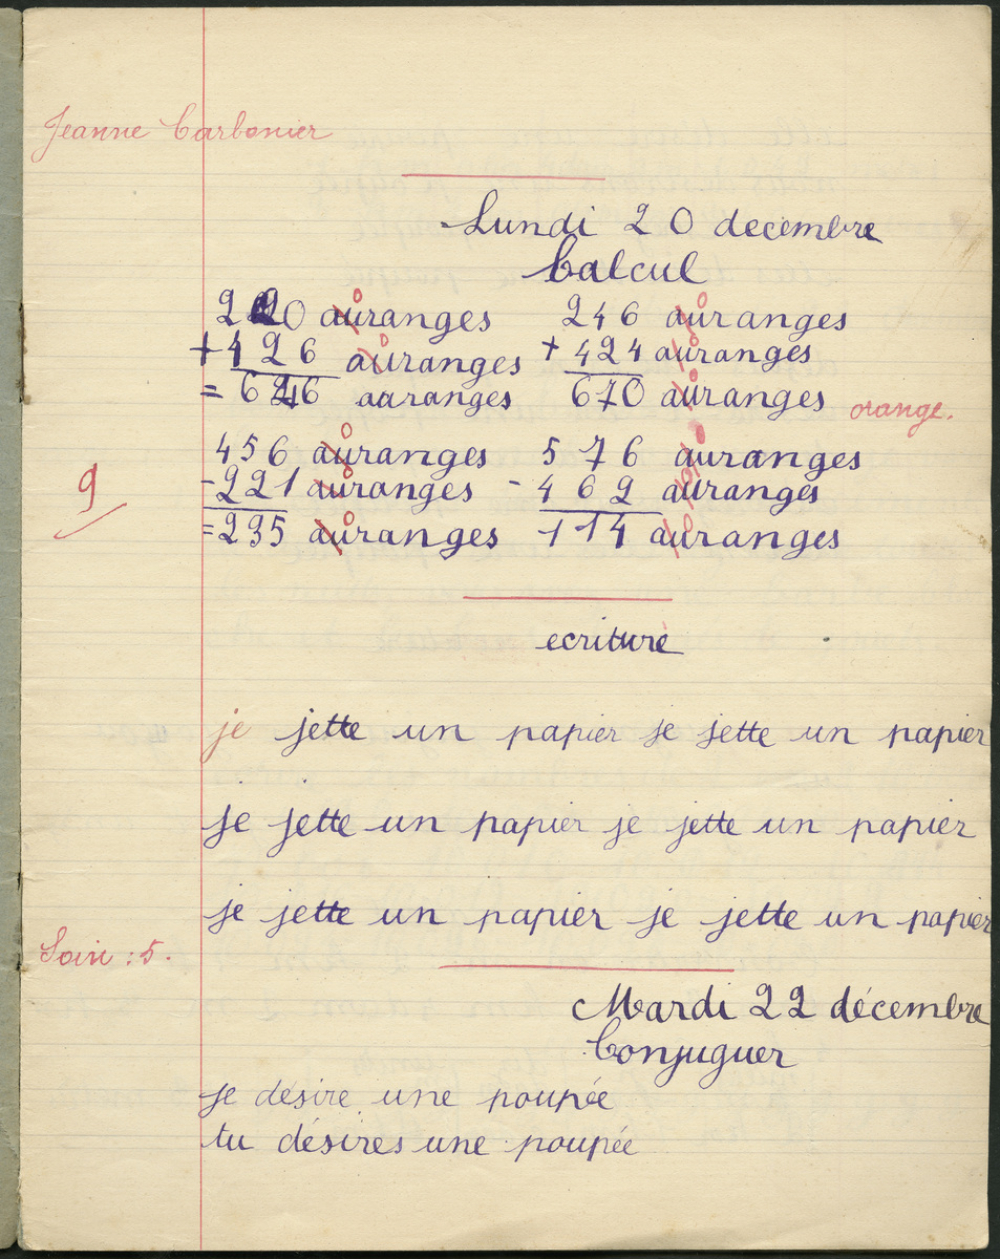 Jeanne Carbonier
Lundi 20 decembre
Calcul
220 auranges 246 auranges
+ 426 auranges + 424 auranges
= 646 auranges 670 auranges orange.
456 auranges 576 auranges
9
- 221 auranges - 462 auranges
= 235 auranges 114 auranges
ecriture
je jette un papier je jette un papier
je jette un papier je jette un papier
je jette un papier je jette un papier
Soin : 5.
Mardi 22 décembre
Conjuguer
je désire une poupée
tu désires une poupée